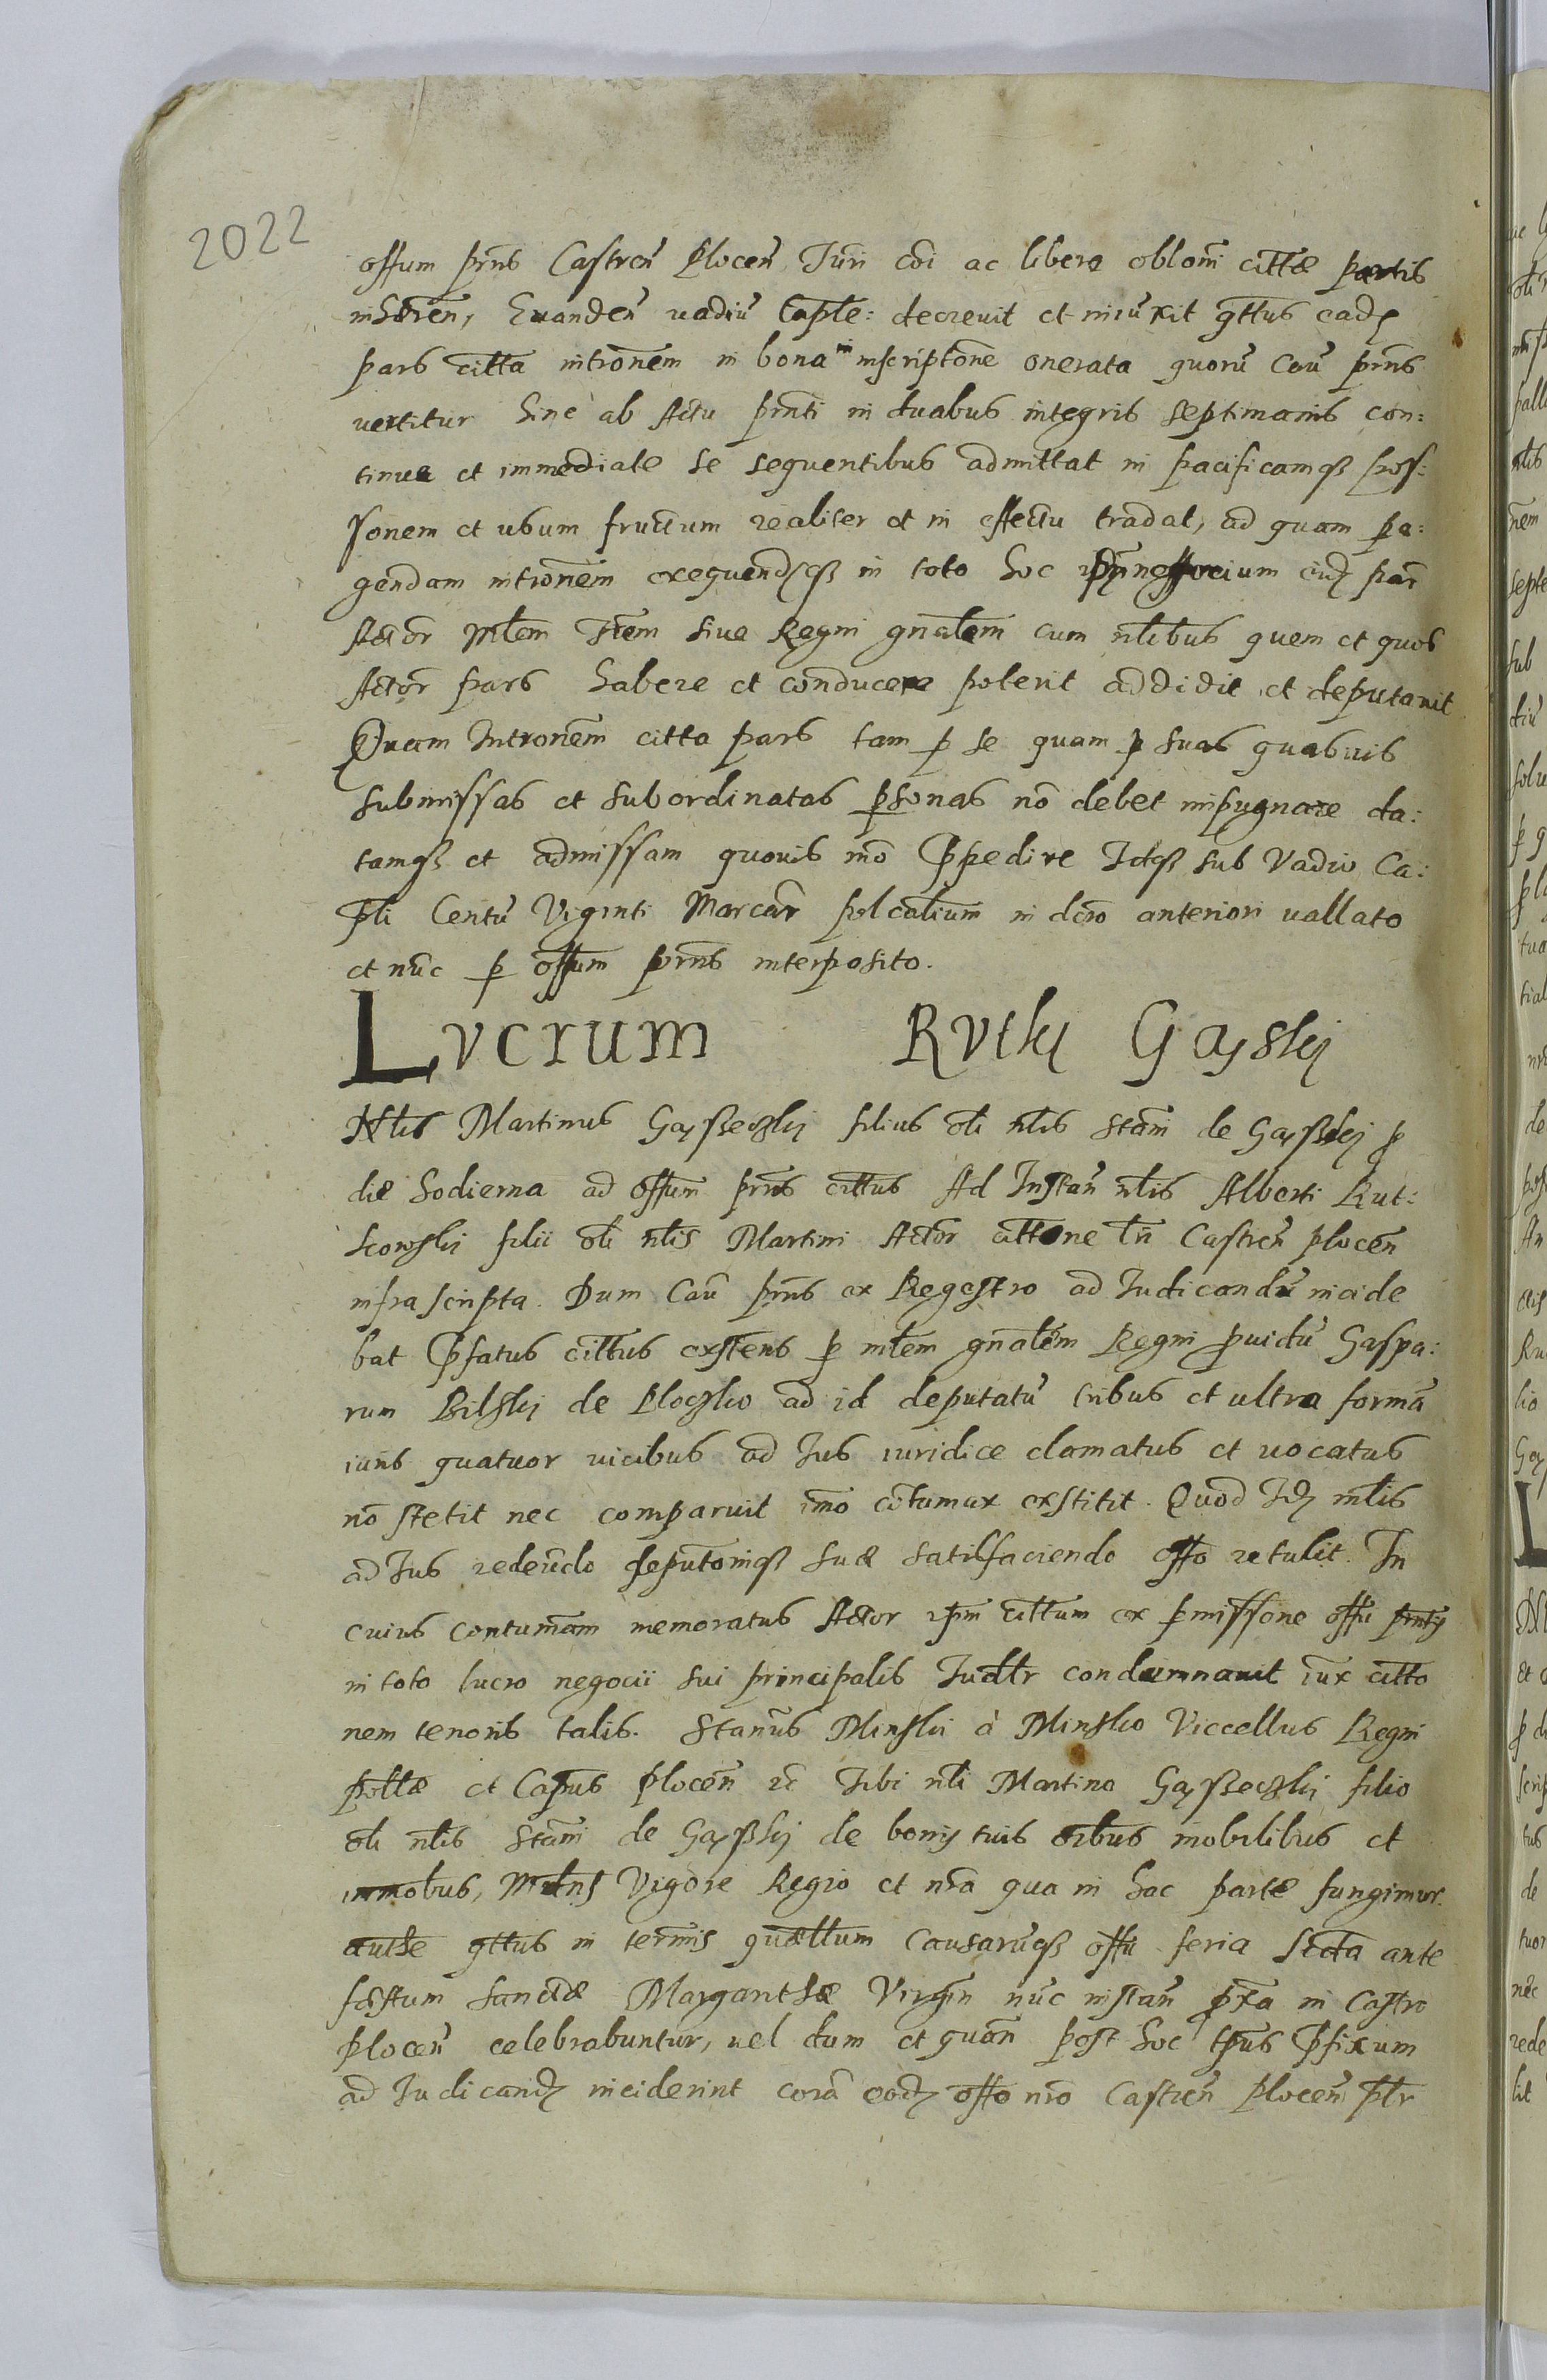 2022
offum prns Castren Plocen Juri coi ac libere oblomi cittae partis
inhaeren, Evanden vadiu Caple: decrevit et iniuxit qttus eadz
pars citta intronem in bona in inscriptone onerata quoru cau prns
vertitur hinc ab Actu prnti in duabus integris septimanis con:
tinue et immediate se sequentibus admittat in pacificamqß pos:
sonem et usum fructum realiter et in effectu tradat, ad quam pa:
gendam intronem exequendzqß in toto hoc negocium eidz par
Actor Mlem Jrem sive Regni gnalem cum nlibus quem et quos
Actor pars habere et conducere poterit addidit et deputavit
Quam Intronem citta pars tam p se quam p suas quasvis
submissas et subordinatas psonas no debet impugnare da:
tamqß et admissam quovis mo Ppedire Idqß sub Vadio Ca:
pli Centu Viginti Marcar polcalium in dcro anteriori vallato
et nuc p offum prns interposito.
Lucrum Rutkj Gayskj
Nlis Martinus Gayßewskj filius oli nlis Stani de Gayßkj p
die hodierna ad offum prns cittus Ad Instan nlis Alberti Rut:
kowskj filii oli nlis Martini Actor cittone tn Castren plocen
infrascripta. Dum Cau prns ex Regestro ad Judicandu incide
bat Pfatus cittus exstens p mlem gnalem Regni pvidu Gaspa:
rum Bilskj de Plocsko ad id deputatu tribus et ultra forma
iuris quatuor vicibus ad Jus iuridice clamatus et vocatus
no stetit nec comparuit imo cotumax exstitit. Quod Jdz mlis
ad Jus redeudo deputoniqß suae satisfaciendo offo retulit. In
cuius contumam memoratus Actor ipm cittum ex pmissone offii prntis
in toto lucro negocii sui principalis Judlr condemnavit iux citto
nem tenoris talis. Stanus Minskj à Minsko Viccellus Regni
pollae et Capnus Plocen rc Tibi nli Martino Gayßewskj filio
oli nlis Stani de Gayßkj de bonis tuis oibus mobilibus et
immobus, Mdns Vigore Regio et nra qua in hac parte fungimur
authe qttus in termis quaellum Causaruqß offii feria sexta ante
festum Sanctae Margarithae Virgin nuc instan pxa in Castro
Plocen celebrabuntur, vel dum et quan post hoc tpus Pfixum
ad Judicandz inciderint cora eodz offo nro Castren Plocen plr